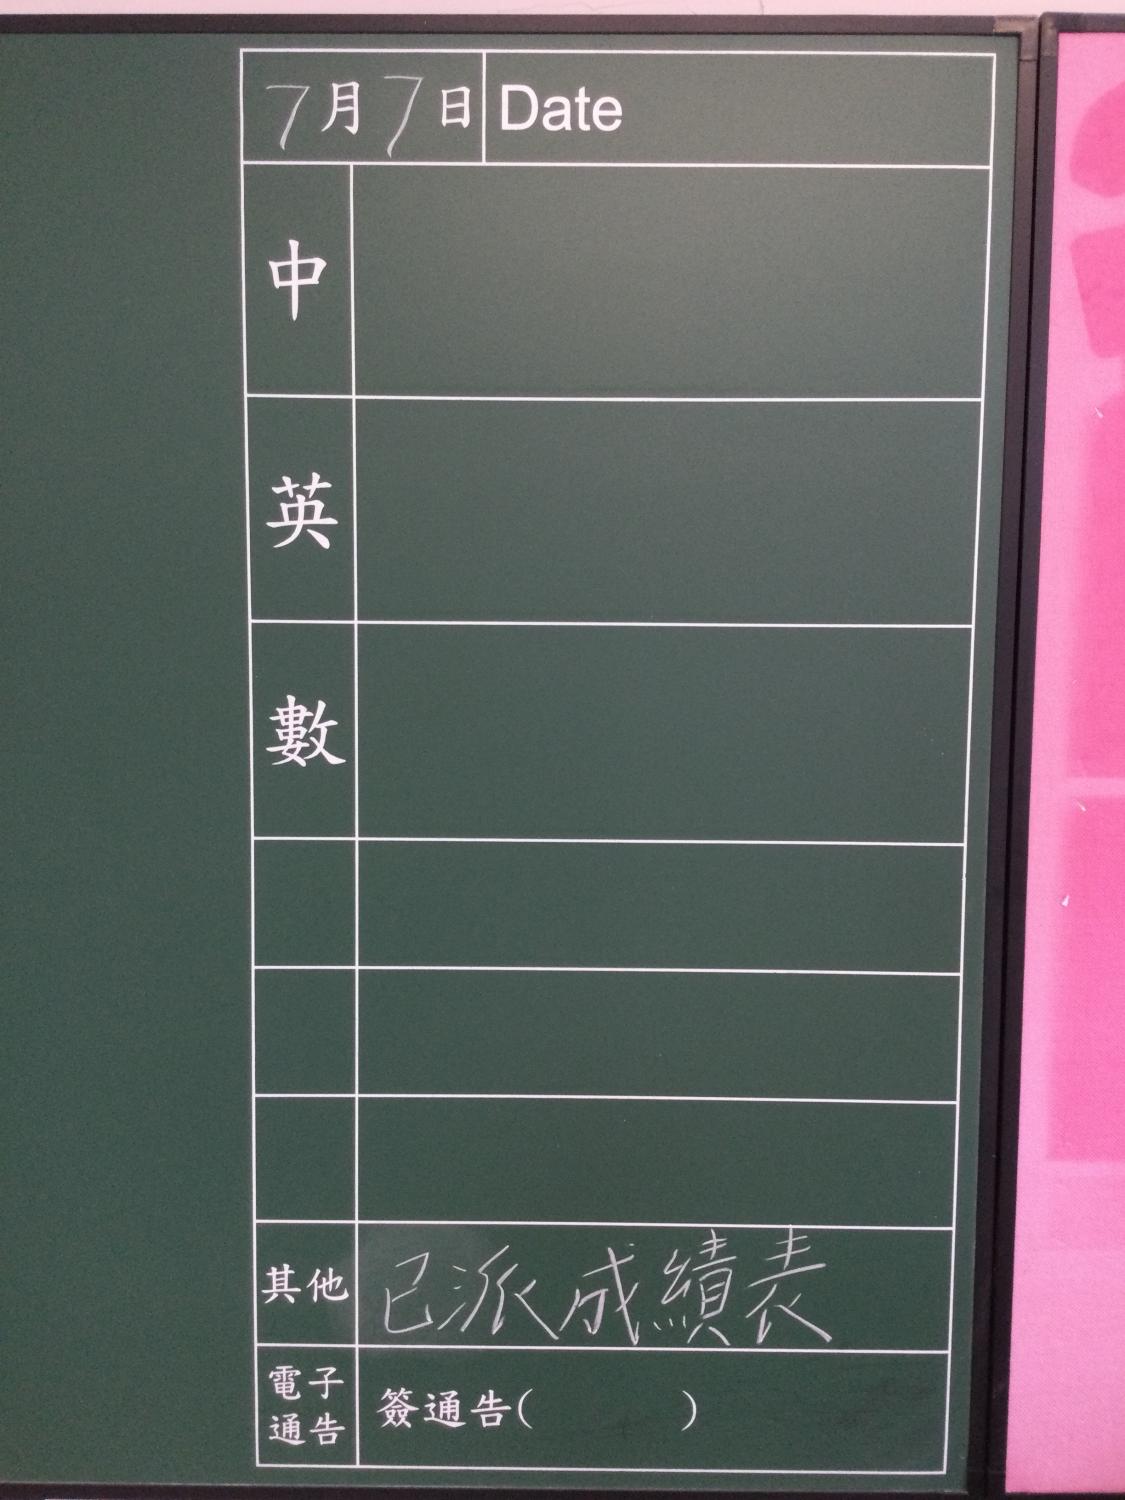 7月7日 Date
中
英
數
其他 已派成績表
電子
通告
簽通告( )